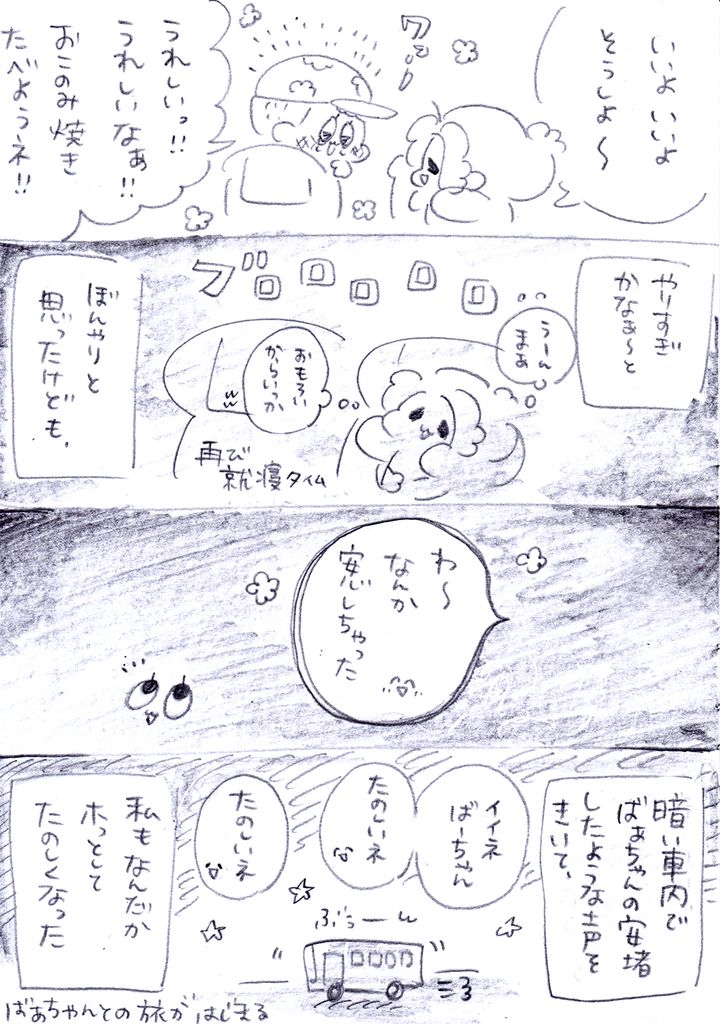 いいよ いいよ
そうしよ〜
ワァ…!
うれしいっ!!
うれしいなぁ!!
おこのみ焼き
たべようネ!!
やりすぎ
かなぁ〜と
うーん
まぁ
ブロロロロロ
おもろい
からいっか
再び
就寝タイム
ぼんやりと
思ったけども、
わ〜
なんか
安心しちゃった
暗い車内で
ばぁちゃんの安堵
したような声を
きいて、
イイネ
ばーちゃん
たのしいネ
たのしいネ
ぶぅーん
私もなんだか
ホっとして
たのしくなった
ばあちゃんとの旅がはじまる